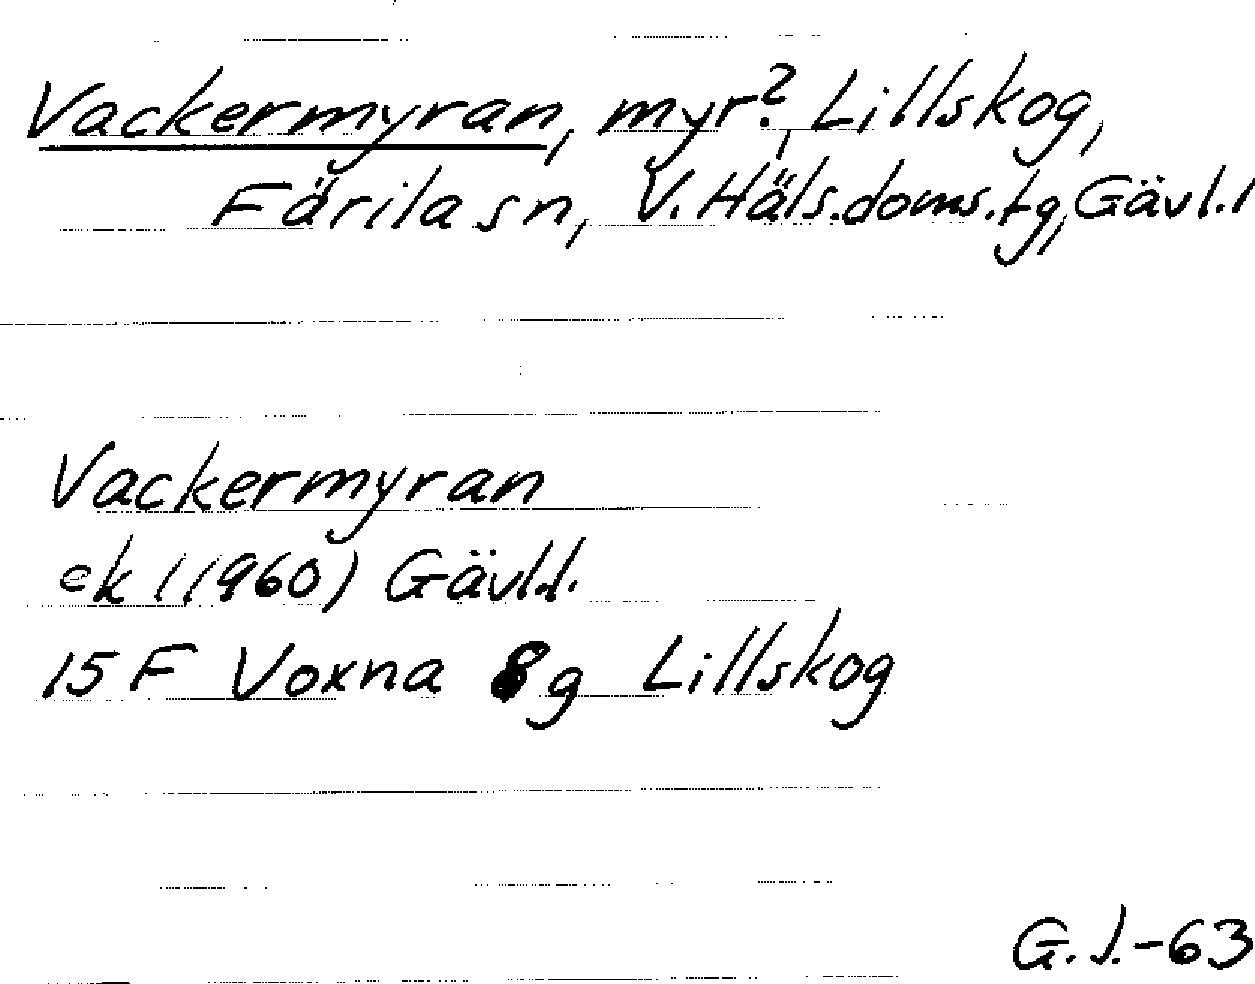 Vackermyran, myr?, Lillskog,
Färila sn, V. Häls. doms. tg, Gävl. l
Vackermyran
ek (1960) Gävl.l.
15 F Voxna 8g Lillskog
G. J.-63